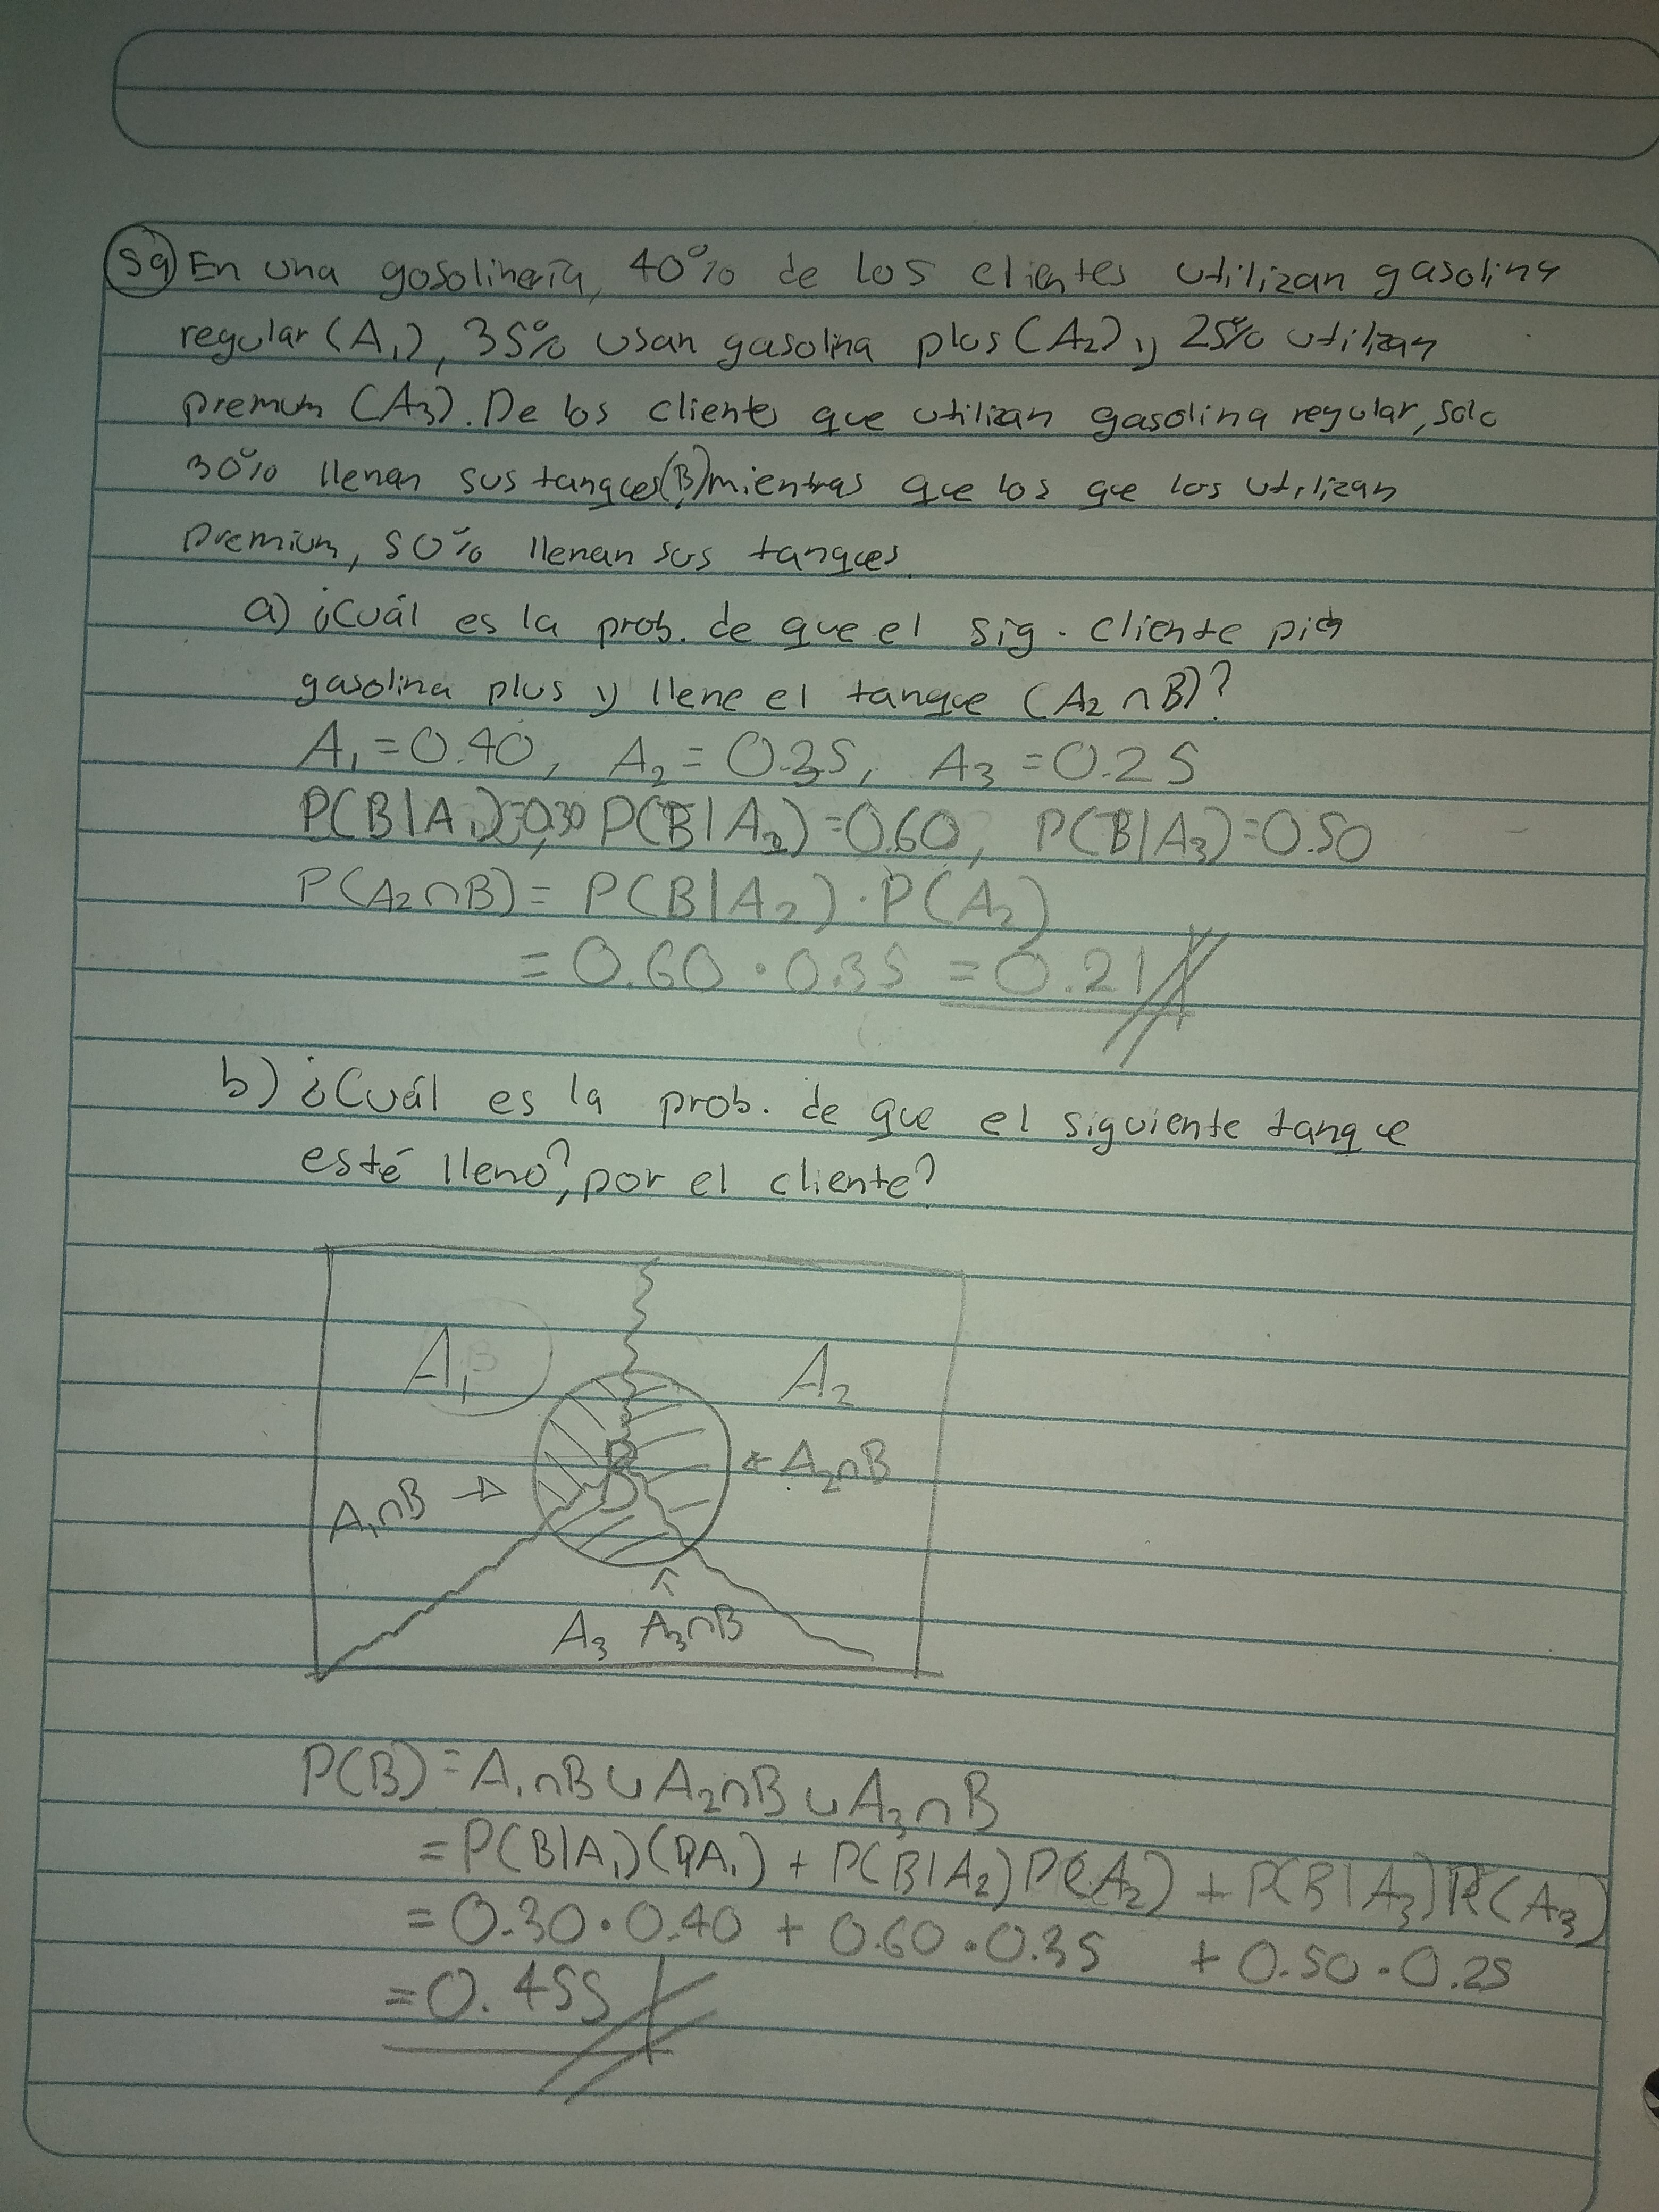 59) En una gasolinería, 40% de los clientes utilizan gasolina
regular (A₁), 35% usan gasolina plus (A₂) y 25% utilizan
premum (A₃). De los clientes que utilizan gasolina regular, solo
30% llenan sus tanques (B) mientras que los que los utilizan
premium, 50% llenan sus tanques.
a) ¿Cuál es la prob. de que el sig. cliente pida
gasolina plus y llene el tanque (A₂ ∩ B)?
A₁ = 0.40, A₂ = 0.35, A₃ = 0.25
P(B|A₁)=0.30, P(B|A₂)=0.60, P(B|A₃)=0.50
P(A₂∩B) = P(B|A₂) · P(A₂)
= 0.60 · 0.35 = 0.21
b) ¿Cuál es la prob. de que el siguiente tanque
esté lleno?, por el cliente?
A₁
A₂
B
A₁∩B →
← A₂∩B
A₃ A₃∩B
P(B) = A₁∩B ∪ A₂∩B ∪ A₃∩B
= P(B|A₁)(PA₁) + P(B|A₂)P(A₂) + P(B|A₃)P(A₃)
= 0.30 · 0.40 + 0.60 · 0.35 + 0.50 · 0.25
= 0.455